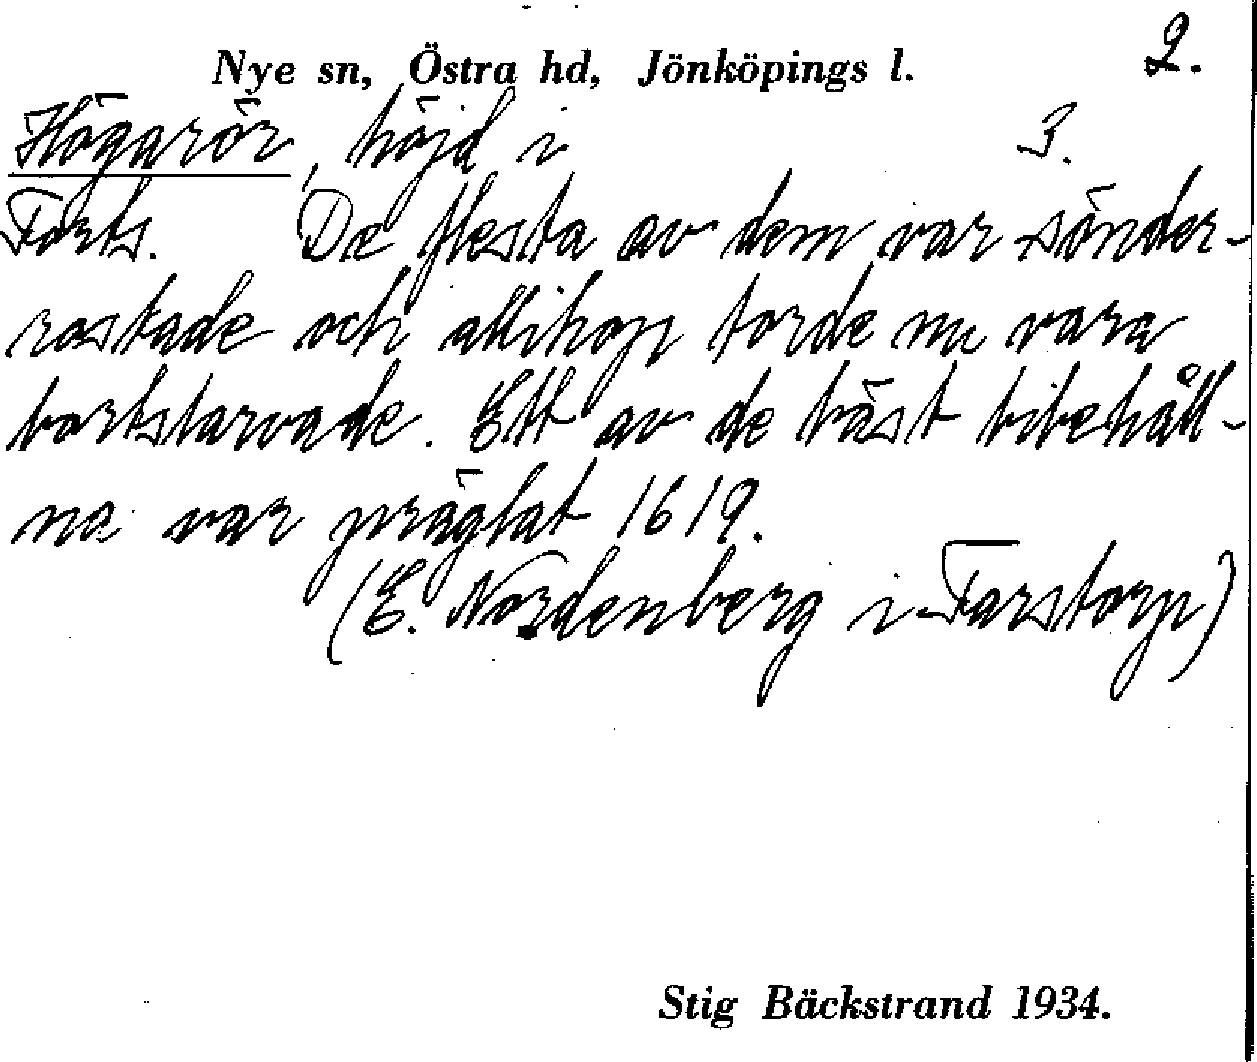 2.
Nye sn, Östra hd, Jönköpings l.
Högarör, höjd i 3.
Forts. De flesta av dem var sönder-
rostade och allihop torde nu vara
bortslarvade. Ett av de bäst bibehåll-
na var präglat 1619.
(E. Nordenberg i Farstorp)
Stig Bäckstrand 1934.